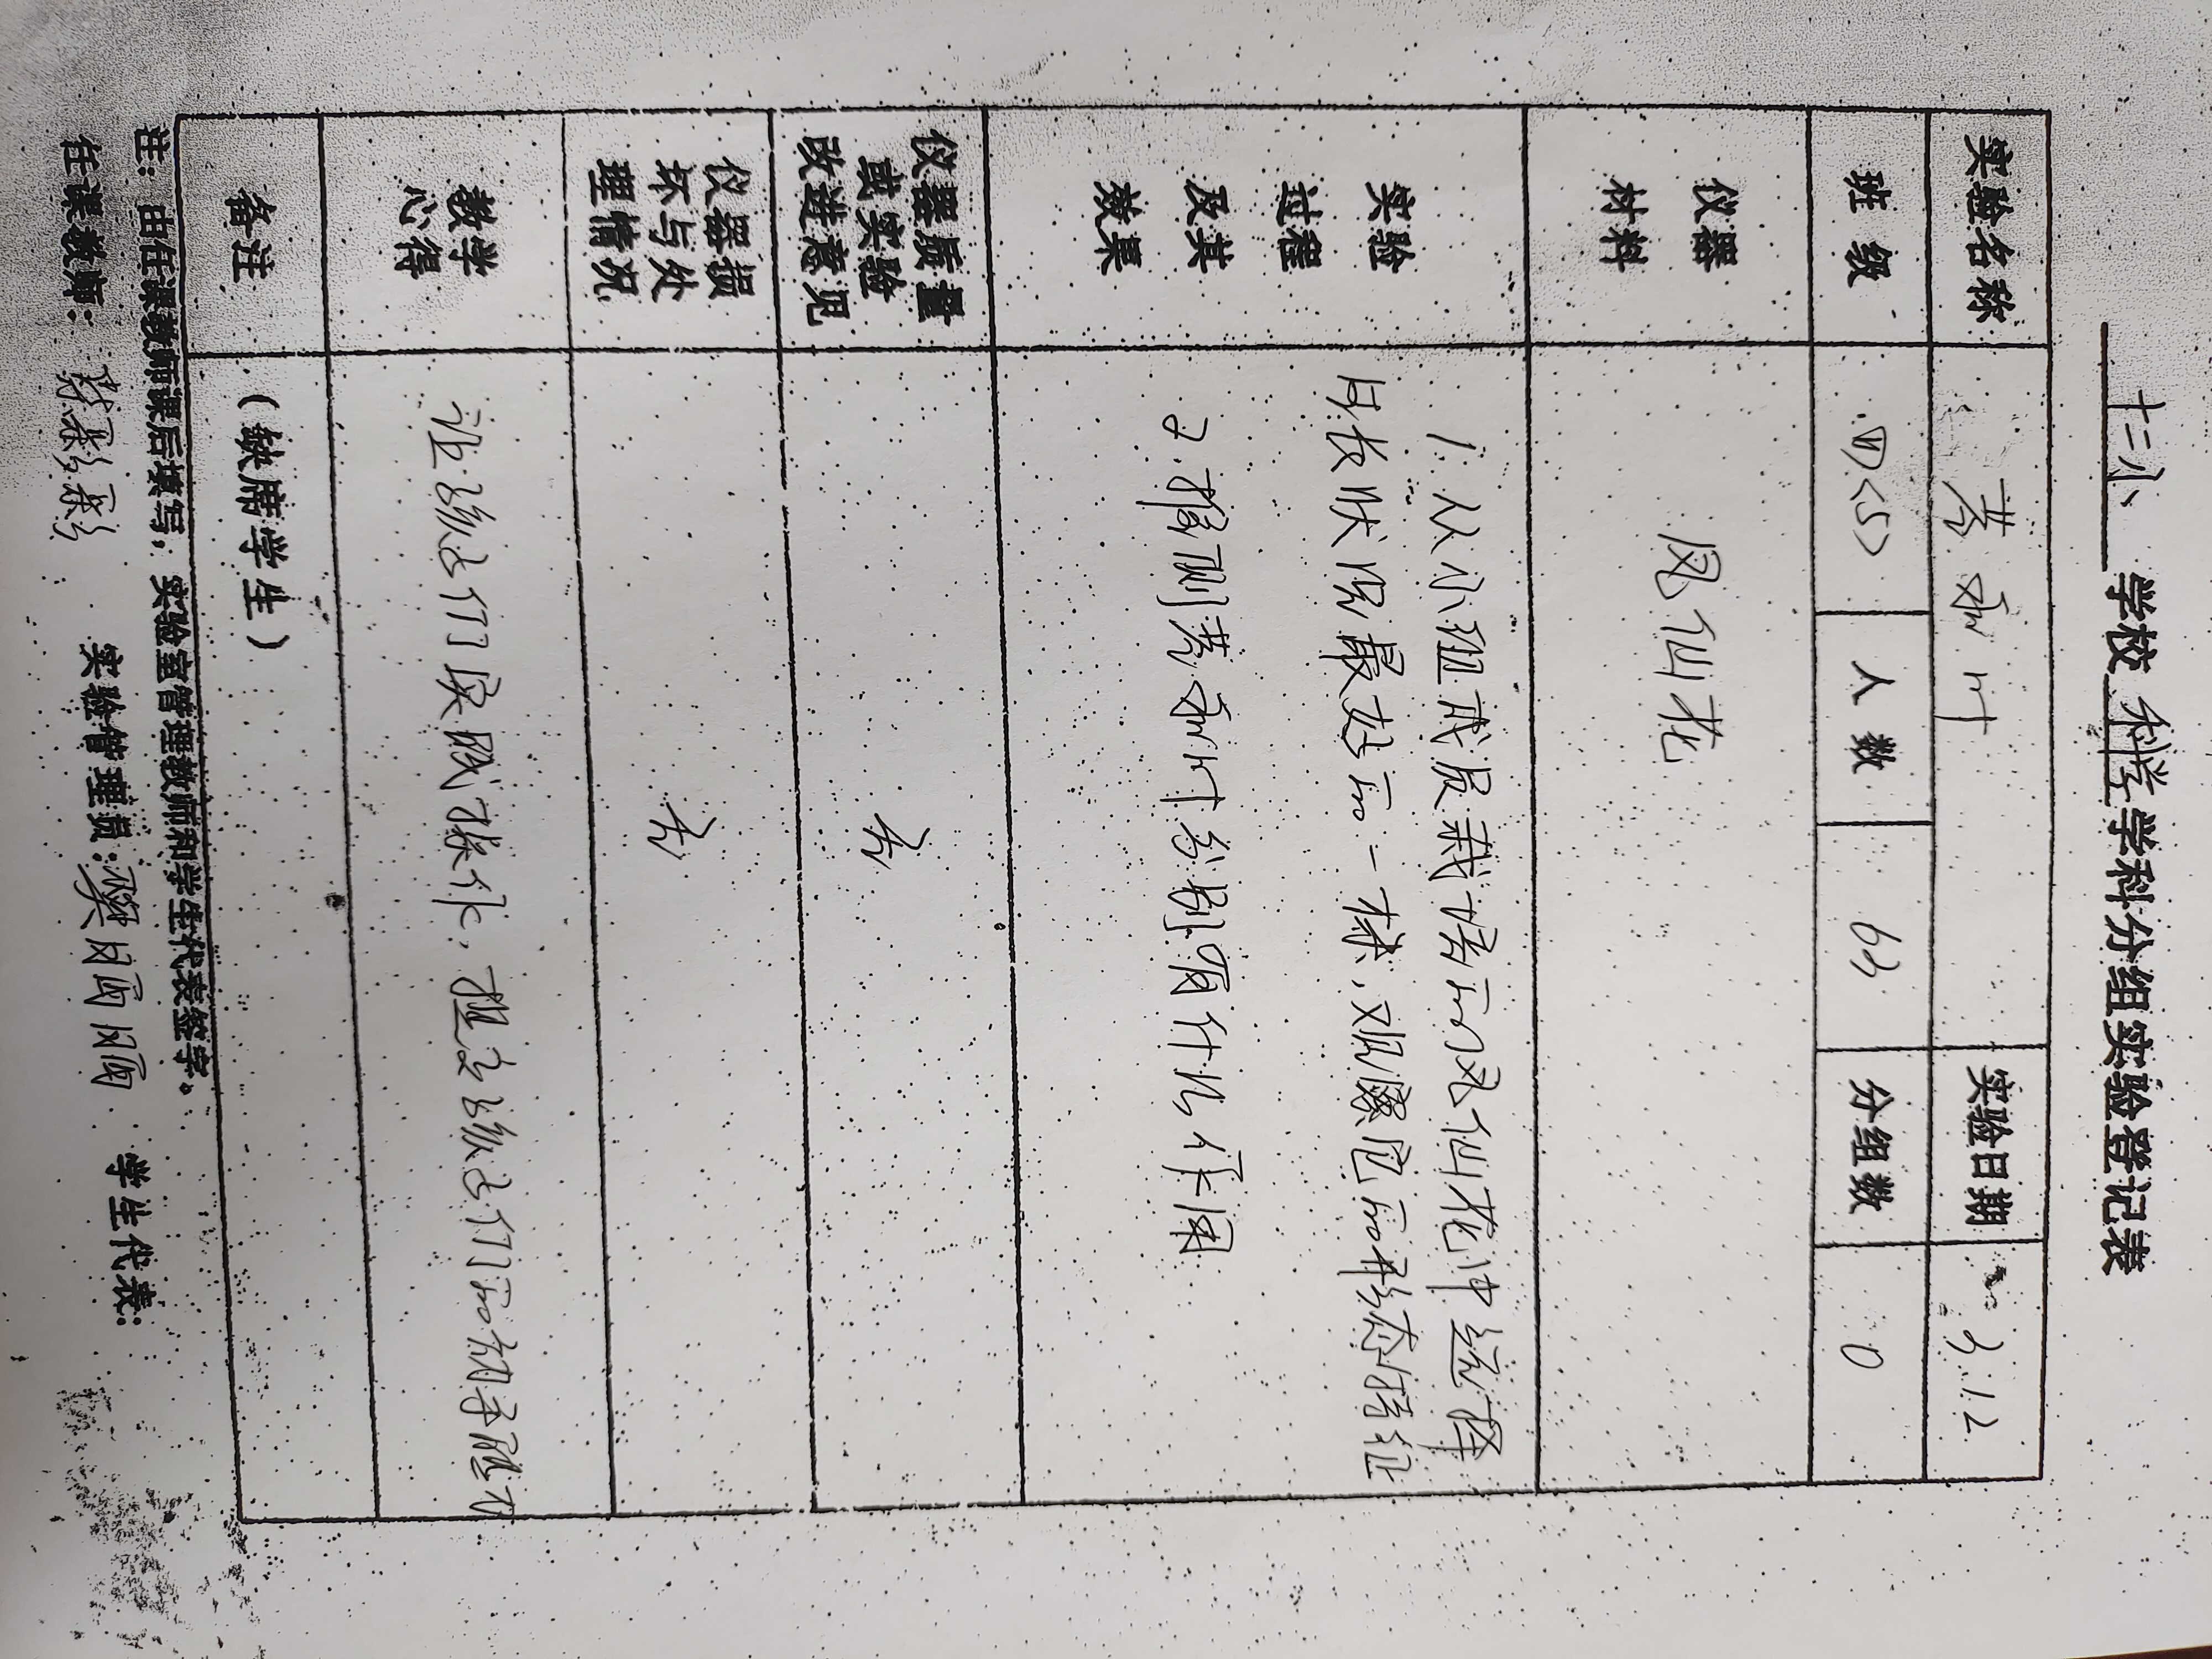 十二小 学校 科学 学科分组实验登记表
实验名称 茎和叶 实验日期 3.12
班级 四<5> 人数 63 分组数 0
仪器材料 凤仙花
实验过程及其效果
1. 从小组成员栽培的凤仙花中选择
日长状况最好的一株,观察它的形态特征
2. 推测茎和叶分别有什么作用
仪器质量或实验改进意见 无
仪器损坏与处理情况 无
教学心得 让孩子们实践操作,提高孩子们的动手能力
备注 (缺席学生)
注:由任课教师课后填写,实验室管理教师和学生代表签字。
任课教师: 实验管理员:樊 学生代表: